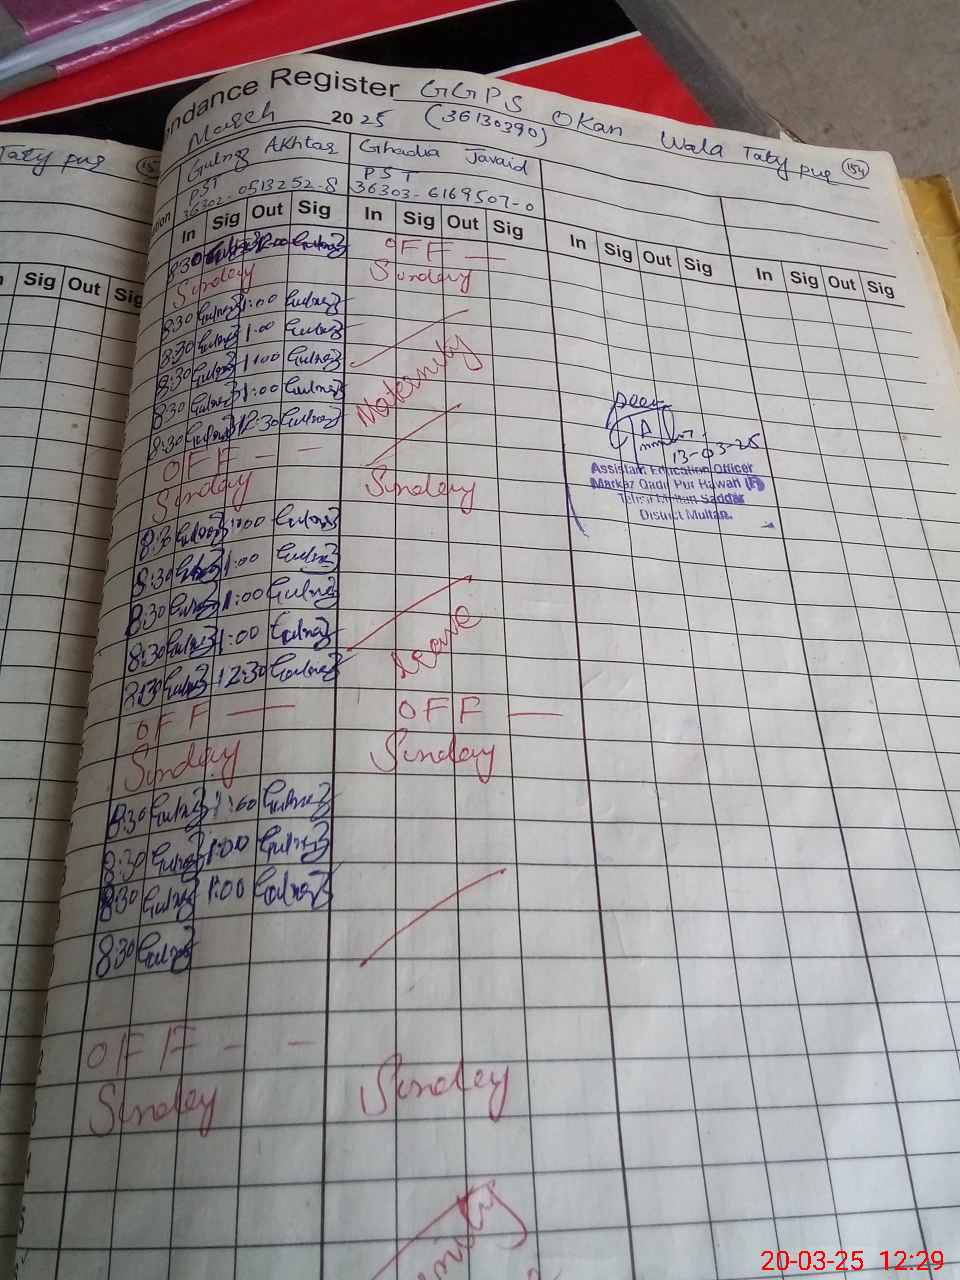 ndance Register GGPS OKan Wala Taty pur
March 2025 (36130390) 154
Taty pur
Gulnaz Akhtar Ghadia Javaid
PST PST
36302-0513252-8 36303-6169507-0
In Sig Out Sig In Sig Out Sig In Sig Out Sig In Sig Out Sig
Sig Out Sig
8:30 Gulnaz 12:00 Gulnaz OFF —
Sunday Sunday
8:30 Gulnaz 1:00 Gulnaz
8:30 Gulnaz 1:00 Gulnaz
8:30 Gulnaz 1:00 Gulnaz Maternity
8:30 Gulnaz 1:00 Gulnaz
8:30 Gulnaz 12:30 Gulnaz
OFF - -
Sunday Sunday
13-03-25
Assistant Education Officer
Markaz Qadir Pur Rawan (F)
Tehsil Multan Saddar
District Multan.
8:30 Gulnaz 1:00 Gulnaz
8:30 Gulnaz 1:00 Gulnaz
8:30 Gulnaz 1:00 Gulnaz
8:30 Gulnaz 1:00 Gulnaz Leave
8:30 Gulnaz 12:30 Gulnaz
OFF — OFF —
Sunday Sunday
8:30 Gulnaz 1:00 Gulnaz
8:30 Gulnaz 1:00 Gulnaz
8:30 Gulnaz 1:00 Gulnaz
8:30 Gulnaz
OFF - -
Sunday Sunday
20-03-25 12:29